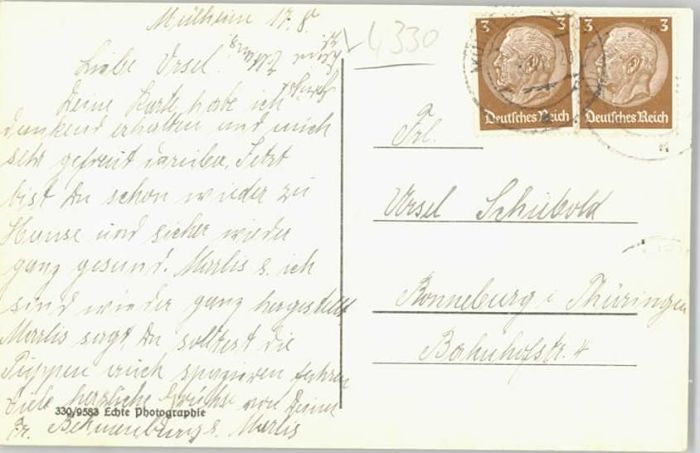 Mülheim 17.8.
Liebe Ursel!
Deine Karte habe ich
dankend erhalten und mich
sehr gefreut darüber. Jetzt
bist Du schon wieder zu
Hause und sicher wieder
ganz gesund. Marlis u. ich
sind wieder ganz hergestellt
Marlis sagt Du solltest die
Puppen auch spazieren fahren
Viele herzliche Grüsse von Deiner
Fr. u. Marlis
330/9583 Echte Photographie
4330
3 3
Deutsches Reich Deutsches Reich
Frl.
Ursel Schubold
Ronneburg i. Thüringen
Bahnhofstr. 4